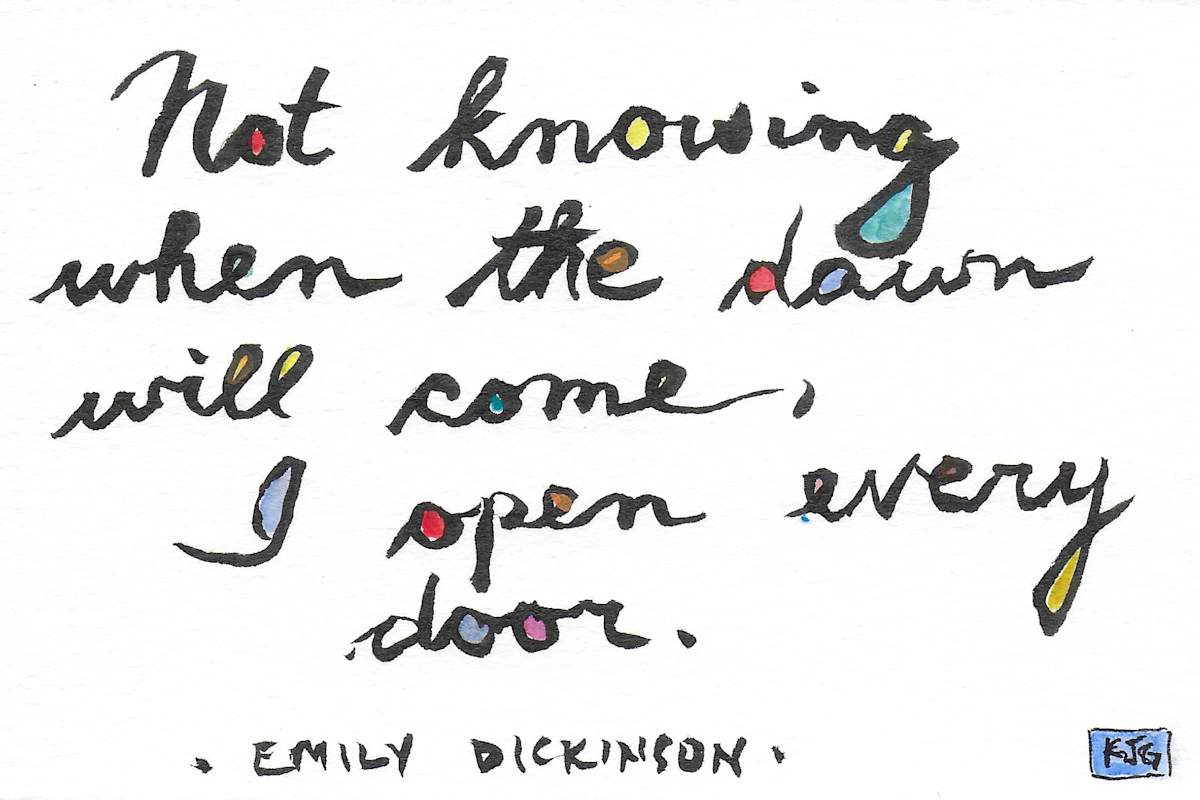 Not knowing
when the dawn
will come,
I open every
door.
. EMILY DICKINSON .
KJG